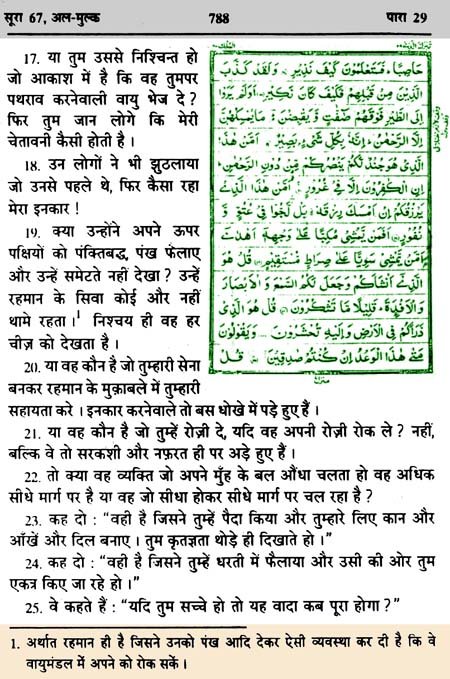 सूरा 67, अल-मुल्क 788 पारा 29
17. या तुम उससे निश्चिन्त हो
जो आकाश में है कि वह तुमपर
पथराव करनेवाली वायु भेज दे ?
फिर तुम जान लोगे कि मेरी
चेतावनी कैसी होती है ।
18. उन लोगों ने भी झुठलाया
जो उनसे पहले थे, फिर कैसा रहा
मेरा इनकार !
19. क्या उन्होंने अपने ऊपर
पक्षियों को पंक्तिबद्ध, पंख फैलाए
और उन्हें समेटते नहीं देखा ? उन्हें
रहमान के सिवा कोई और नहीं
थामे रहता ।¹ निश्चय ही वह हर
चीज़ को देखता है ।
20. या वह कौन है जो तुम्हारी सेना
बनकर रहमान के मुक़ाबले में तुम्हारी
حَاصِبًا ۖ فَسَتَعْلَمُونَ كَيْفَ نَذِيرِ وَلَقَدْ كَذَّبَ
الَّذِينَ مِنْ قَبْلِهِمْ فَكَيْفَ كَانَ نَكِيرِ أَوَلَمْ يَرَوْا
إِلَى الطَّيْرِ فَوْقَهُمْ صٰٓفّٰتٍ وَيَقْبِضْنَ مَا يُمْسِكُهُنَّ
إِلَّا الرَّحْمٰنُ إِنَّهُ بِكُلِّ شَيْءٍ بَصِيرٌ أَمَّنْ هٰذَا
الَّذِي هُوَ جُنْدٌ لَكُمْ يَنْصُرُكُمْ مِنْ دُونِ الرَّحْمٰنِ
إِنِ الْكٰفِرُونَ إِلَّا فِي غُرُورٍ أَمَّنْ هٰذَا الَّذِي
يَرْزُقُكُمْ إِنْ أَمْسَكَ رِزْقَهُ بَلْ لَجُّوا فِي عُتُوٍّ وَ
نُفُورٍ أَفَمَنْ يَمْشِي مُكِبًّا عَلَىٰ وَجْهِهٖ أَهْدٰىٓ
أَمَّنْ يَمْشِي سَوِيًّا عَلَىٰ صِرَاطٍ مُسْتَقِيمٍ قُلْ هُوَ
الَّذِي أَنْشَأَكُمْ وَجَعَلَ لَكُمُ السَّمْعَ وَالْأَبْصَارَ
وَالْأَفْئِدَةَ قَلِيلًا مَا تَشْكُرُونَ قُلْ هُوَ الَّذِي
ذَرَأَكُمْ فِي الْأَرْضِ وَإِلَيْهِ تُحْشَرُونَ وَيَقُولُونَ
مَتٰى هٰذَا الْوَعْدُ إِنْ كُنْتُمْ صٰدِقِينَ قُلْ
सहायता करे । इनकार करनेवाले तो बस धोखे में पड़े हुए हैं ।
21. या वह कौन है जो तुम्हें रोज़ी दे, यदि वह अपनी रोज़ी रोक ले ? नहीं,
बल्कि वे तो सरकशी और नफ़रत ही पर अड़े हुए हैं ।
22. तो क्या वह व्यक्ति जो अपने मुँह के बल औंधा चलता हो वह अधिक
सीधे मार्ग पर है या वह जो सीधा होकर सीधे मार्ग पर चल रहा है ?
23. कह दो : “वही है जिसने तुम्हें पैदा किया और तुम्हारे लिए कान और
आँखें और दिल बनाए । तुम कृतज्ञता थोड़े ही दिखाते हो ।”
24. कह दो : “वही है जिसने तुम्हें धरती में फैलाया और उसी की ओर तुम
एकत्र किए जा रहे हो ।”
25. वे कहते हैं : “यदि तुम सच्चे हो तो यह वादा कब पूरा होगा ?”
1. अर्थात रहमान ही है जिसने उनको पंख आदि देकर ऐसी व्यवस्था कर दी है कि वे
वायुमंडल में अपने को रोक सकें ।